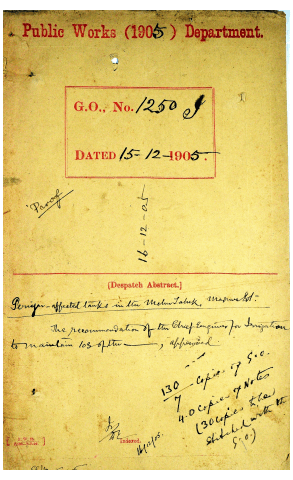 Public Works (1905) Department.
G.O., No. 1250 I
DATED 15-12-1905.
Proof
16-12-05
[Despatch Abstract.]
Periyar-affected tanks in the Melur Taluk, Madura Dt.
The recommendation of the Chief Engineer for Irrigation
to maintain 103 of the —, approved
130 Copies of G.O.
7
40 Copies of Notes
(30 copies to be
attached with the
G.O.)
Indexed.
16/12/05.